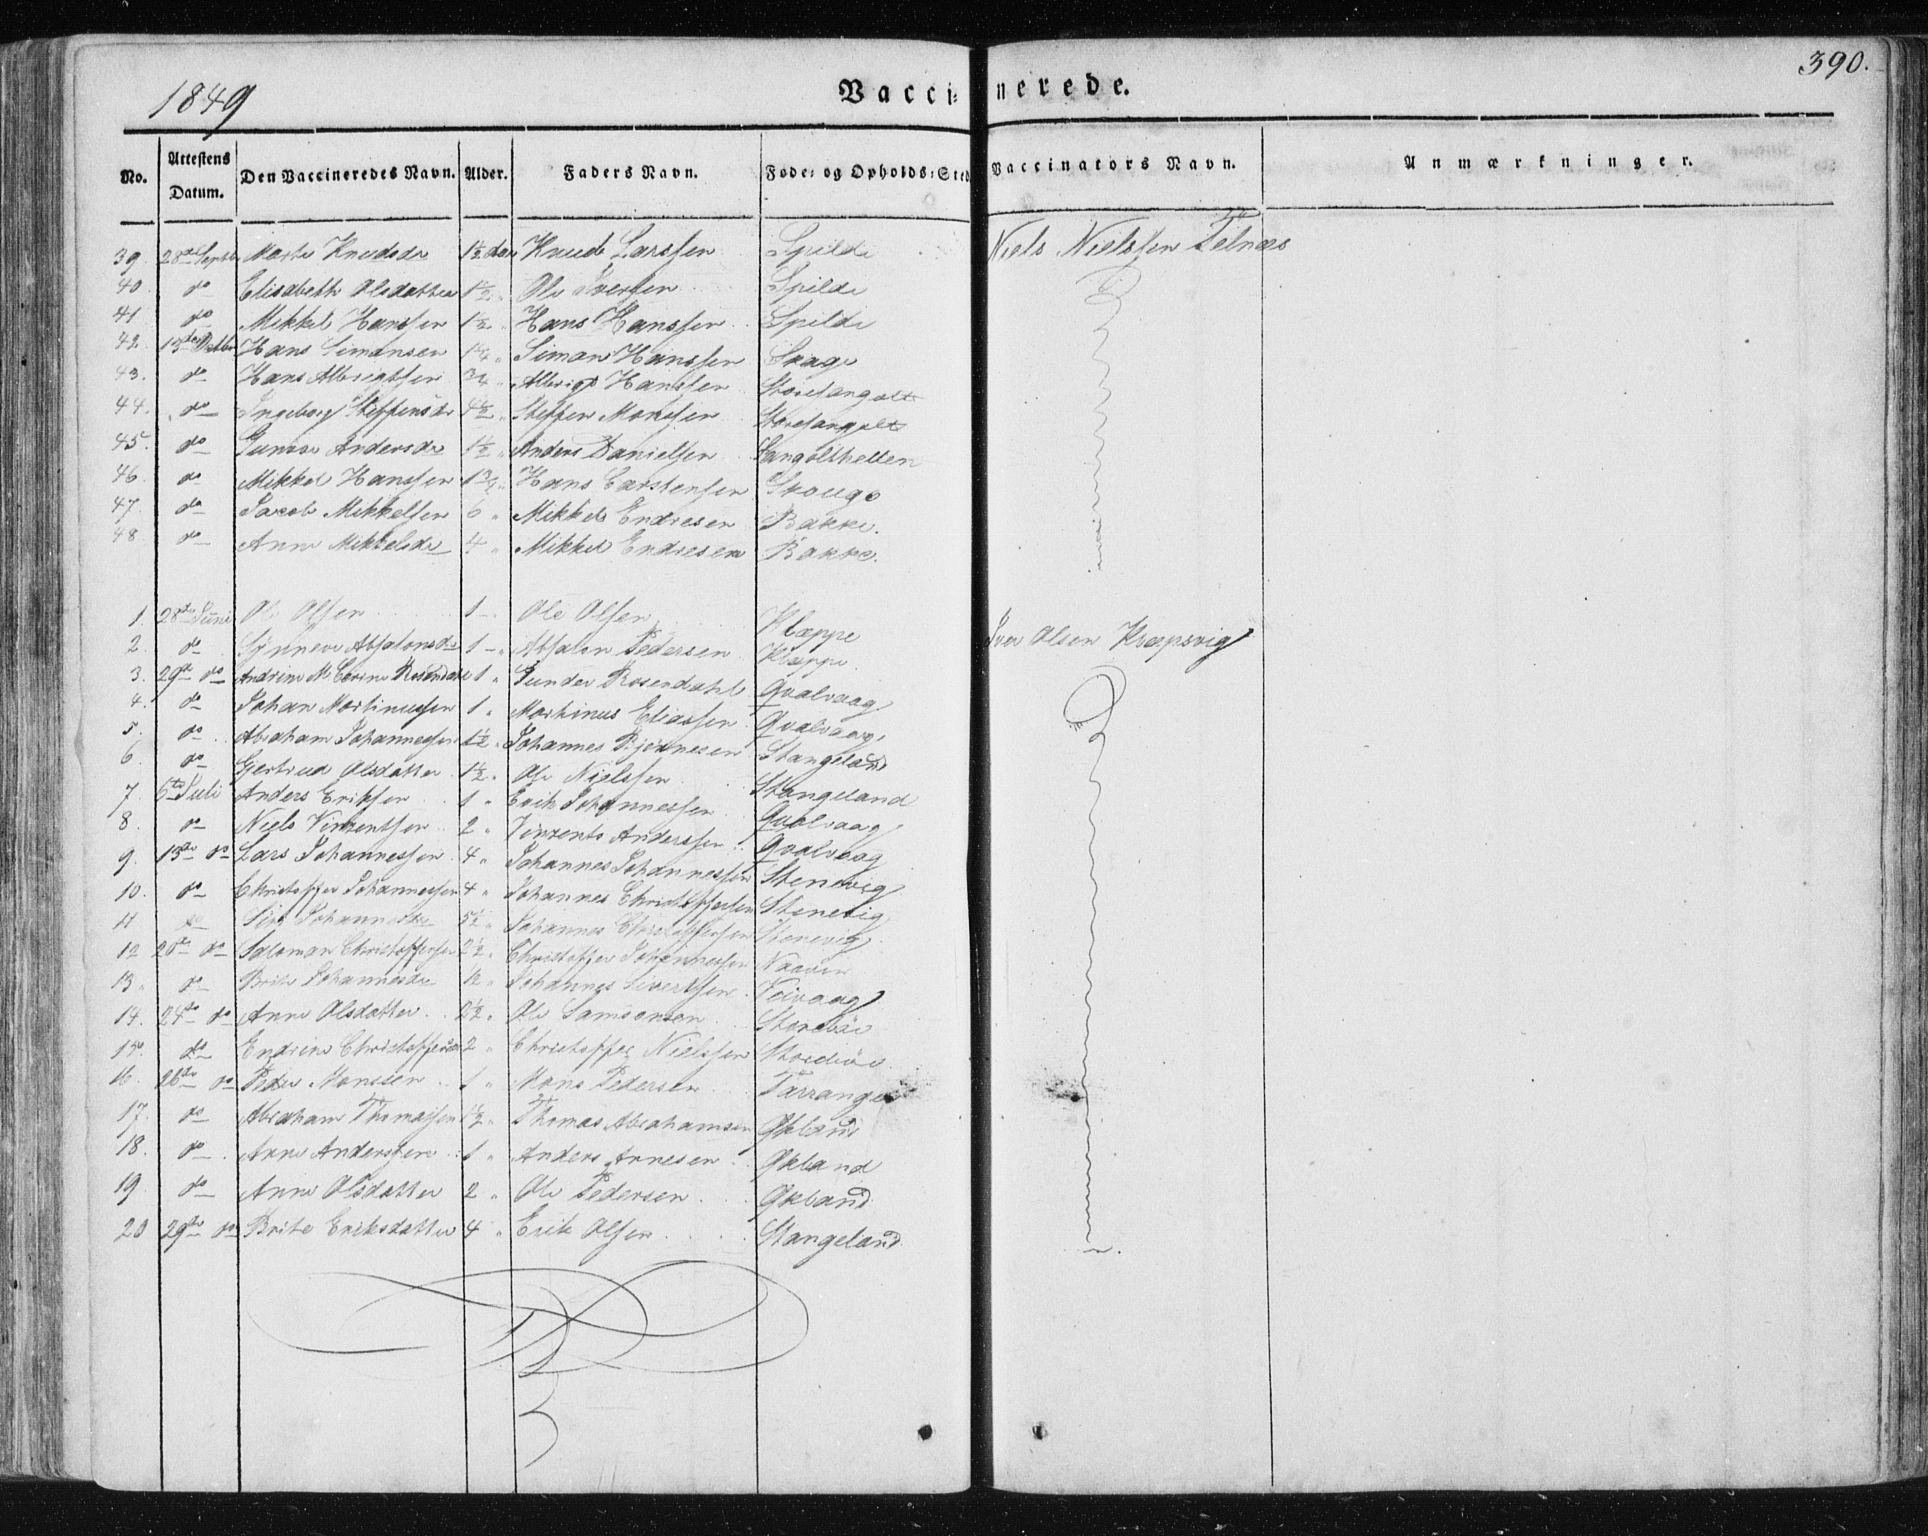 1849
Vaccinerede.
390.
No. Attestens Datum. Den Vaccineredes Navn. Alder. Faders Navn. Føde- og Opholds-Sted Vaccinators Navn. Anmærkninger.
39. 28de Septb Marte Knudsdr 1½ Knud Larssen Spilde Niels Nielssen Telnæs
40. do Elisabeth Olsdatter 1½ " Ole Iversen Spilde
41 do Mikkel Hanssen 1½ " Hans Hanssen Spilde
42. 13de Octbr Hans Simonsen " Simon Hanssen Skage
43. do Hans Albrigtsen 3/4 " Albrigt Hanssen Storesangolt
44. do Ingeborg Steffensdr 4½ " Steffen Monssen Storesangolt
45. do Andersdr 1½ " Anders Danielsen Sangolthellen
46. do Mikkel Hanssen 1¾ " Hans Carstensen Skouge
47. do Jacob Mikkelsen 6 " Mikkel Endresen Bakke.
48. do Anne Mikkelsdr 4 " Mikkel Endresen Bakke.
1. 28de Juni Ole Olsen 1 - Ole Olsen Klæppe
2. do Synneve Absalonsdr 1 - " Absalon Pedersen Klæppe. Iver Olsen Kræpsvig
3. 29de do Andrine M. Cerine Rosendahl 1 " Gunder Rosendahl Qvalvaag
4. do Johan Martinussen 1 " Martinus Eliassen Qvalvaag.
5. do Abraham Johannessen 1½ " Johannes Bjørnesen Stangeland
6. do Gertrud Olsdatter 1½ " Ole Nielssen Stangeland
7. 6te Juli Anders Eriksen 1 " Erik Johannessen Qvalvaag
8. do Niels Vinzentsen 2 " Vinzents Anderssen Qvalvaag
9. 13de do Lars Johannessen 4 " Johannes Johannessen Stenevig
10. do Christoffer Johannessen 4 " Johannes Christoffersen Stenevig
11 do Johannesdr 5½ " Johannes Christoffersen Stenevig
12 20de do Salomon Christoffersen 2½ " Christoffer Johannessen
13. do Brite Johannesdr " Johannes Sivertsen Veivaag
14. 24de do Anne Olsdatter 2½ " Ole Samsonsen Storebøe
15. do Endrine Christoffersdr 2 " Christoffer Nielssen Storebøe
16. 26de do Peder Monssen 1 " Mons Pedersen Tarranger
17. do Abraham Thomassen 1½ " Thomas Abrahamsen Økland
18. do Anne Anderssen 1 " Anders Arnesen Økland
19. do Anne Olsdatter 2 " Ole Pedersen Økland
20 29de do Brite Eriksdatter 4 " Erik Olsen Stangeland.